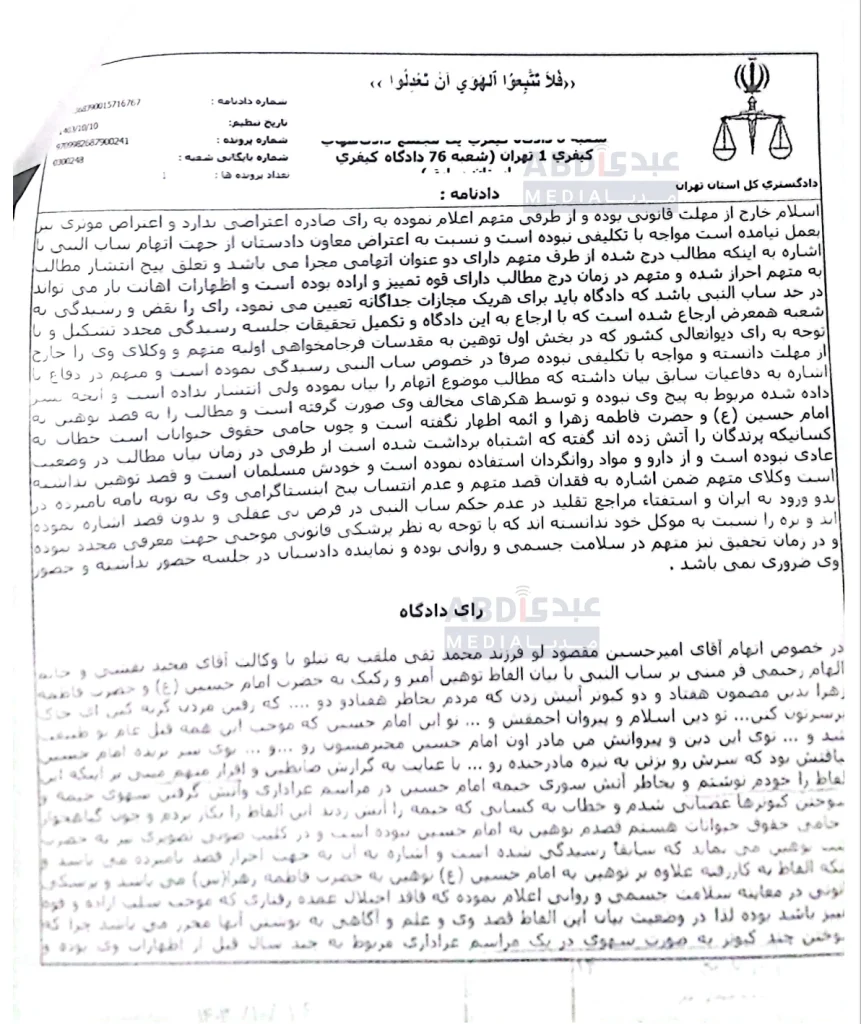 ((فَلاَ تَتَّبِعوُا اَلهَوَي اَنْ تَعْدِلُوا))
شماره دادنامه : 368390015716767
تاریخ تنظیم: 1403/10/10
شماره پرونده : 9709982687900241
شماره بایگانی شعبه : 0300248
تعداد پرونده ها : 1
کیفری 1 تهران (شعبه 76 دادگاه کیفری
دادگستری کل استان تهران
عبدی ABDI
MEDIA مدیا
دادنامه :
اسلام خارج از مهلت قانونی بوده و از طرفی متهم اعلام نموده به رای صادره اعتراضی ندارد و اعتراض موثری نیز
بعمل نیامده است مواجه با تکلیفی نبوده است و نسبت به اعتراض معاون دادستان از جهت اتهام ساب النبی با
اشاره به اینکه مطالب درج شده از طرف متهم دارای دو عنوان اتهامی مجزا می باشد و تعلق پیج انتشار مطالب
به متهم احراز شده و متهم در زمان درج مطالب دارای قوه تمییز و اراده بوده است و اظهارات اهانت بار می تواند
در حد ساب النبی باشد که دادگاه باید برای هریک مجازات جداگانه تعیین می نمود، رای را نقض و رسیدگی به
شعبه همعرض ارجاع شده است که با ارجاع به این دادگاه و تکمیل تحقیقات جلسه رسیدگی مجدد تشکیل و با
توجه به رای دیوانعالی کشور که در بخش اول توهین به مقدسات فرجامخواهی اولیه متهم و وکلای وی را خارج
از مهلت دانسته و مواجه با تکلیفی نبوده صرفا در خصوص ساب النبی رسیدگی نموده است و متهم در دفاع با
اشاره به دفاعیات سابق بیان داشته که مطالب موضوع اتهام را بیان نموده ولی انتشار نداده است و آنچه نشر
داده شده مربوط به پیج وی نبوده و توسط هکرهای مخالف وی صورت گرفته است و مطالب را به قصد توهین به
امام حسین (ع) و حضرت فاطمه زهرا و ائمه اظهار نگفته است و چون حامی حقوق حیوانات است خطاب به
کسانیکه پرندگان را آتش زده اند گفته که اشتباه برداشت شده است از طرفی در زمان بیان مطالب در وضعیت
عادی نبوده است و از دارو و مواد روانگردان استفاده نموده است و خودش مسلمان است و قصد توهین نداشته
است وکلای متهم ضمن اشاره به فقدان قصد متهم و عدم انتساب پیج اینستاگرامی وی به توبه نامه نامبرده در
بدو ورود به ایران و استفتاء مراجع تقلید در عدم حکم ساب النبی در فرض بی عقلی و بدون قصد اشاره نموده
اند و بزه را نسبت به موکل خود ندانسته اند که با توجه به نظر پزشکی قانونی موجبی جهت معرفی مجدد نبوده
و در زمان تحقیق نیز متهم در سلامت جسمی و روانی بوده و نماینده دادستان در جلسه حضور نداشته و حضور
وی ضروری نمی باشد .
عبدی ABDI
MEDIA مدیا
رای دادگاه
در خصوص اتهام آقای امیرحسین مقصود لو فرزند محمد تقی ملقب به تتلو با وکالت آقای مجید نقشی و خانم
الهام رحیمی فر مبنی بر ساب النبی با بیان الفاظ توهین آمیز و رکیک به حضرت امام حسین (ع) و حضرت فاطمه
زهرا بدین مضمون هفتاد و دو کبوتر آتیش زدن که مردم بخاطر هفتادو دو .... که رفتن مردن گریه کنن ای خاک
برسرتون کنن... تو دین اسلام و پیروان احمقش و ... تو این امام حسین که موجب این همه قتل عام تو طبیعت
شد و ... توی این دین و پیروانش من مادر اون امام حسین محترمتون رو ...و ... توی سر بریده امام حسین
لیاقتش بود که سرش رو بزنن به نیزه مادرجنده رو ... با عنایت به گزارش ضابطین و اقرار متهم مبنی بر اینکه این
الفاظ را خودم نوشتم و بخاطر آتش سوزی خیمه امام حسین در مراسم عزاداری وآتش گرفتن سهوی خیمه و
سوختن کبوترها عصبانی شدم و خطاب به کسانی که خیمه را آتش زدند این الفاظ را بکار بردم و چون گیاهخوار
حامی حقوق حیوانات هستم قصدم توهین به امام حسین نبوده است و در کلیپ صوتی تصویری نیز به حضرت
توهین می نماید که سابقا رسیدگی شده است و اشاره به آن به جهت احراز قصد نامبرده می باشد و
اینکه الفاظ به کاررفته علاوه بر توهین به امام حسین (ع) توهین به حضرت فاطمه زهرا(س) می باشد و پزشکی
قانونی در معاینه سلامت جسمی و روانی اعلام نموده که فاقد اختلال عمده رفتاری که موجب سلب اراده و قوه
تمییز باشد بوده لذا در وضعیت بیان این الفاظ قصد وی و علم و آگاهی به نوشتن آنها محرز می باشد چرا که
سوختن چند کبوتر به صورت سهوی در یک مراسم عزاداری مربوط به چند سال قبل از اظهارات وی بوده و